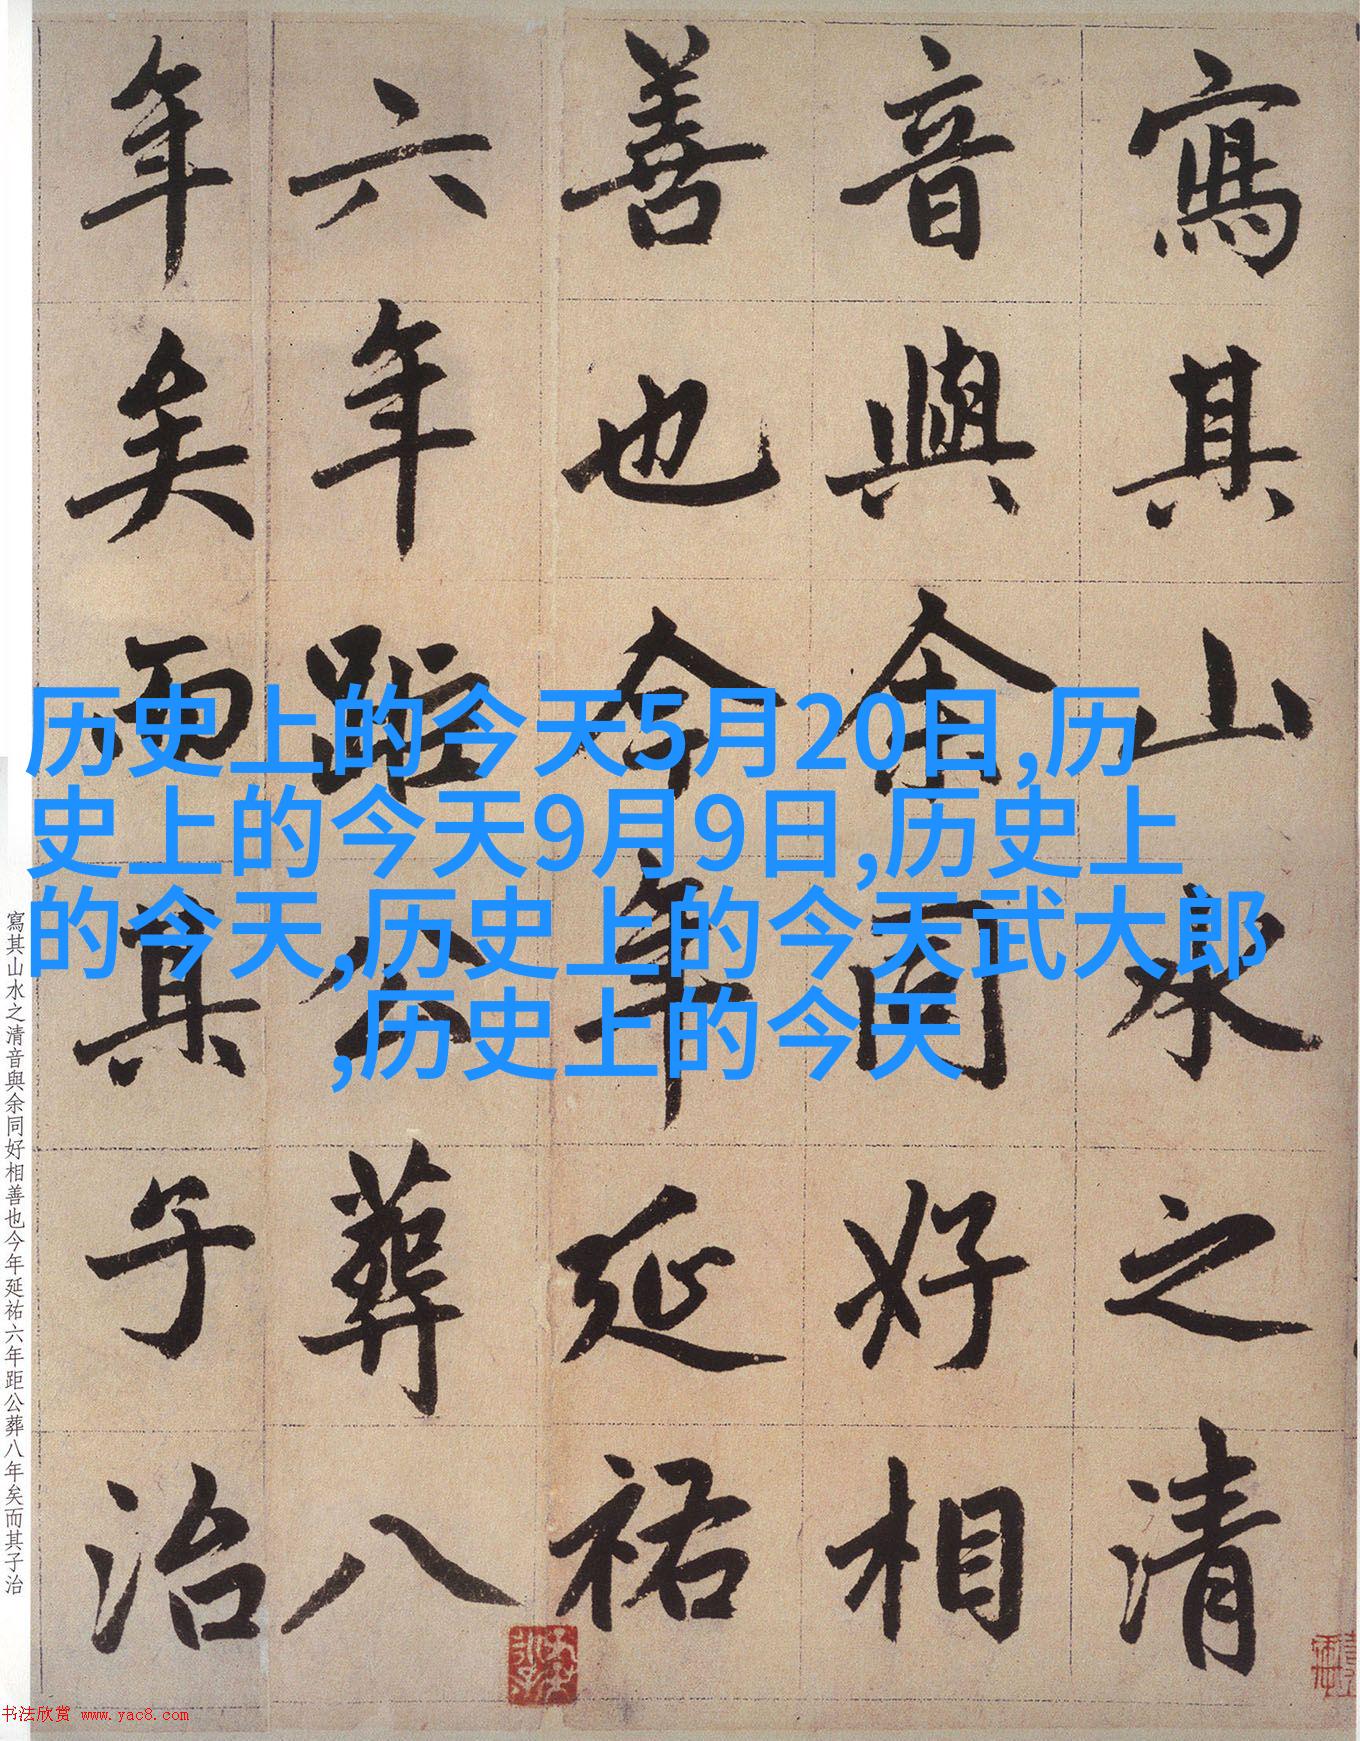 寫其山水之清
音與余同好相
善也今年延祐
六年距公葬八
年矣而其子治
历史上的今天5月20日,历
史上的今天9月9日,历史上
的今天,历史上的今天武大郎
,历史上的今天
寫其山水之清音與余同好相善也今年延祐六年距公葬八年矣而其子治
书法欣赏 www.yac8.com